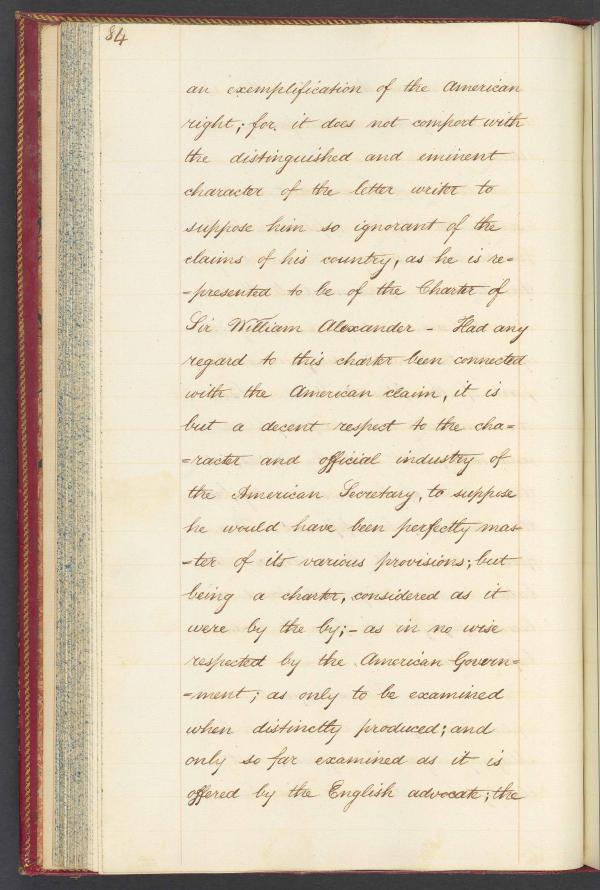 84
an exemplification of the American
right; for it does not comport with
the distinguished and eminent
character of the letter writer to
suppose him so ignorant of the
claims of his country, as he is re=
-presented to be of the Charter of
Sir William Alexander - Had any
regard to this charter been connected
with the American claim, it is
but a decent respect to the cha=
=racter and official industry of
the American Secretary, to suppose
he would have been perfectly mas-
-ter of its various provisions; but
being a charter, considered as it
were by the by; - as in no wise
respected by the American Govern=
=ment; as only to be examined
when distinctly produced; and
only so far examined as it is
offered by the English advocate; the